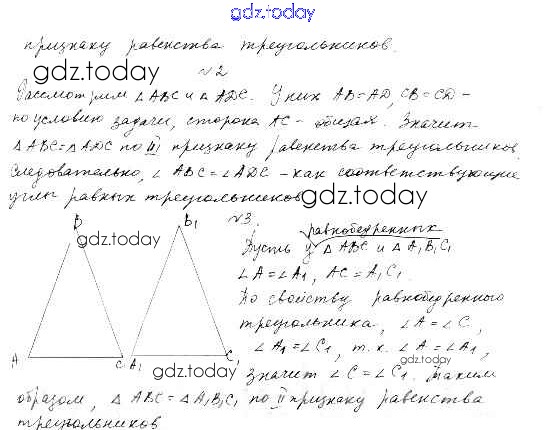 gdz.today
признаку равенства треугольников.
gdz.today
№2
Рассмотрим △ABC и △ADC. У них AB=AD, CB=CD -
по условию задачи, сторона AC - общая. Значит
△ABC=△ADC по III признаку равенства треугольников.
Следовательно, ∠ABC=∠ADC - как соответствующие
углы равных треугольников
gdz.today
№3.
равнобедренных
Пусть у △ABC и △A₁B₁C₁
∠A=∠A₁, AC=A₁C₁.
По свойству равнобедренного
треугольника, ∠A=∠C,
∠A₁=∠C₁, т.к. ∠A=∠A₁,
значит ∠C=∠C₁. Таким
образом, △ABC=△A₁B₁C₁ по II признаку равенства
треугольников
B
B₁
gdz.today
A
C
A₁
C₁
gdz.today
gdz.today